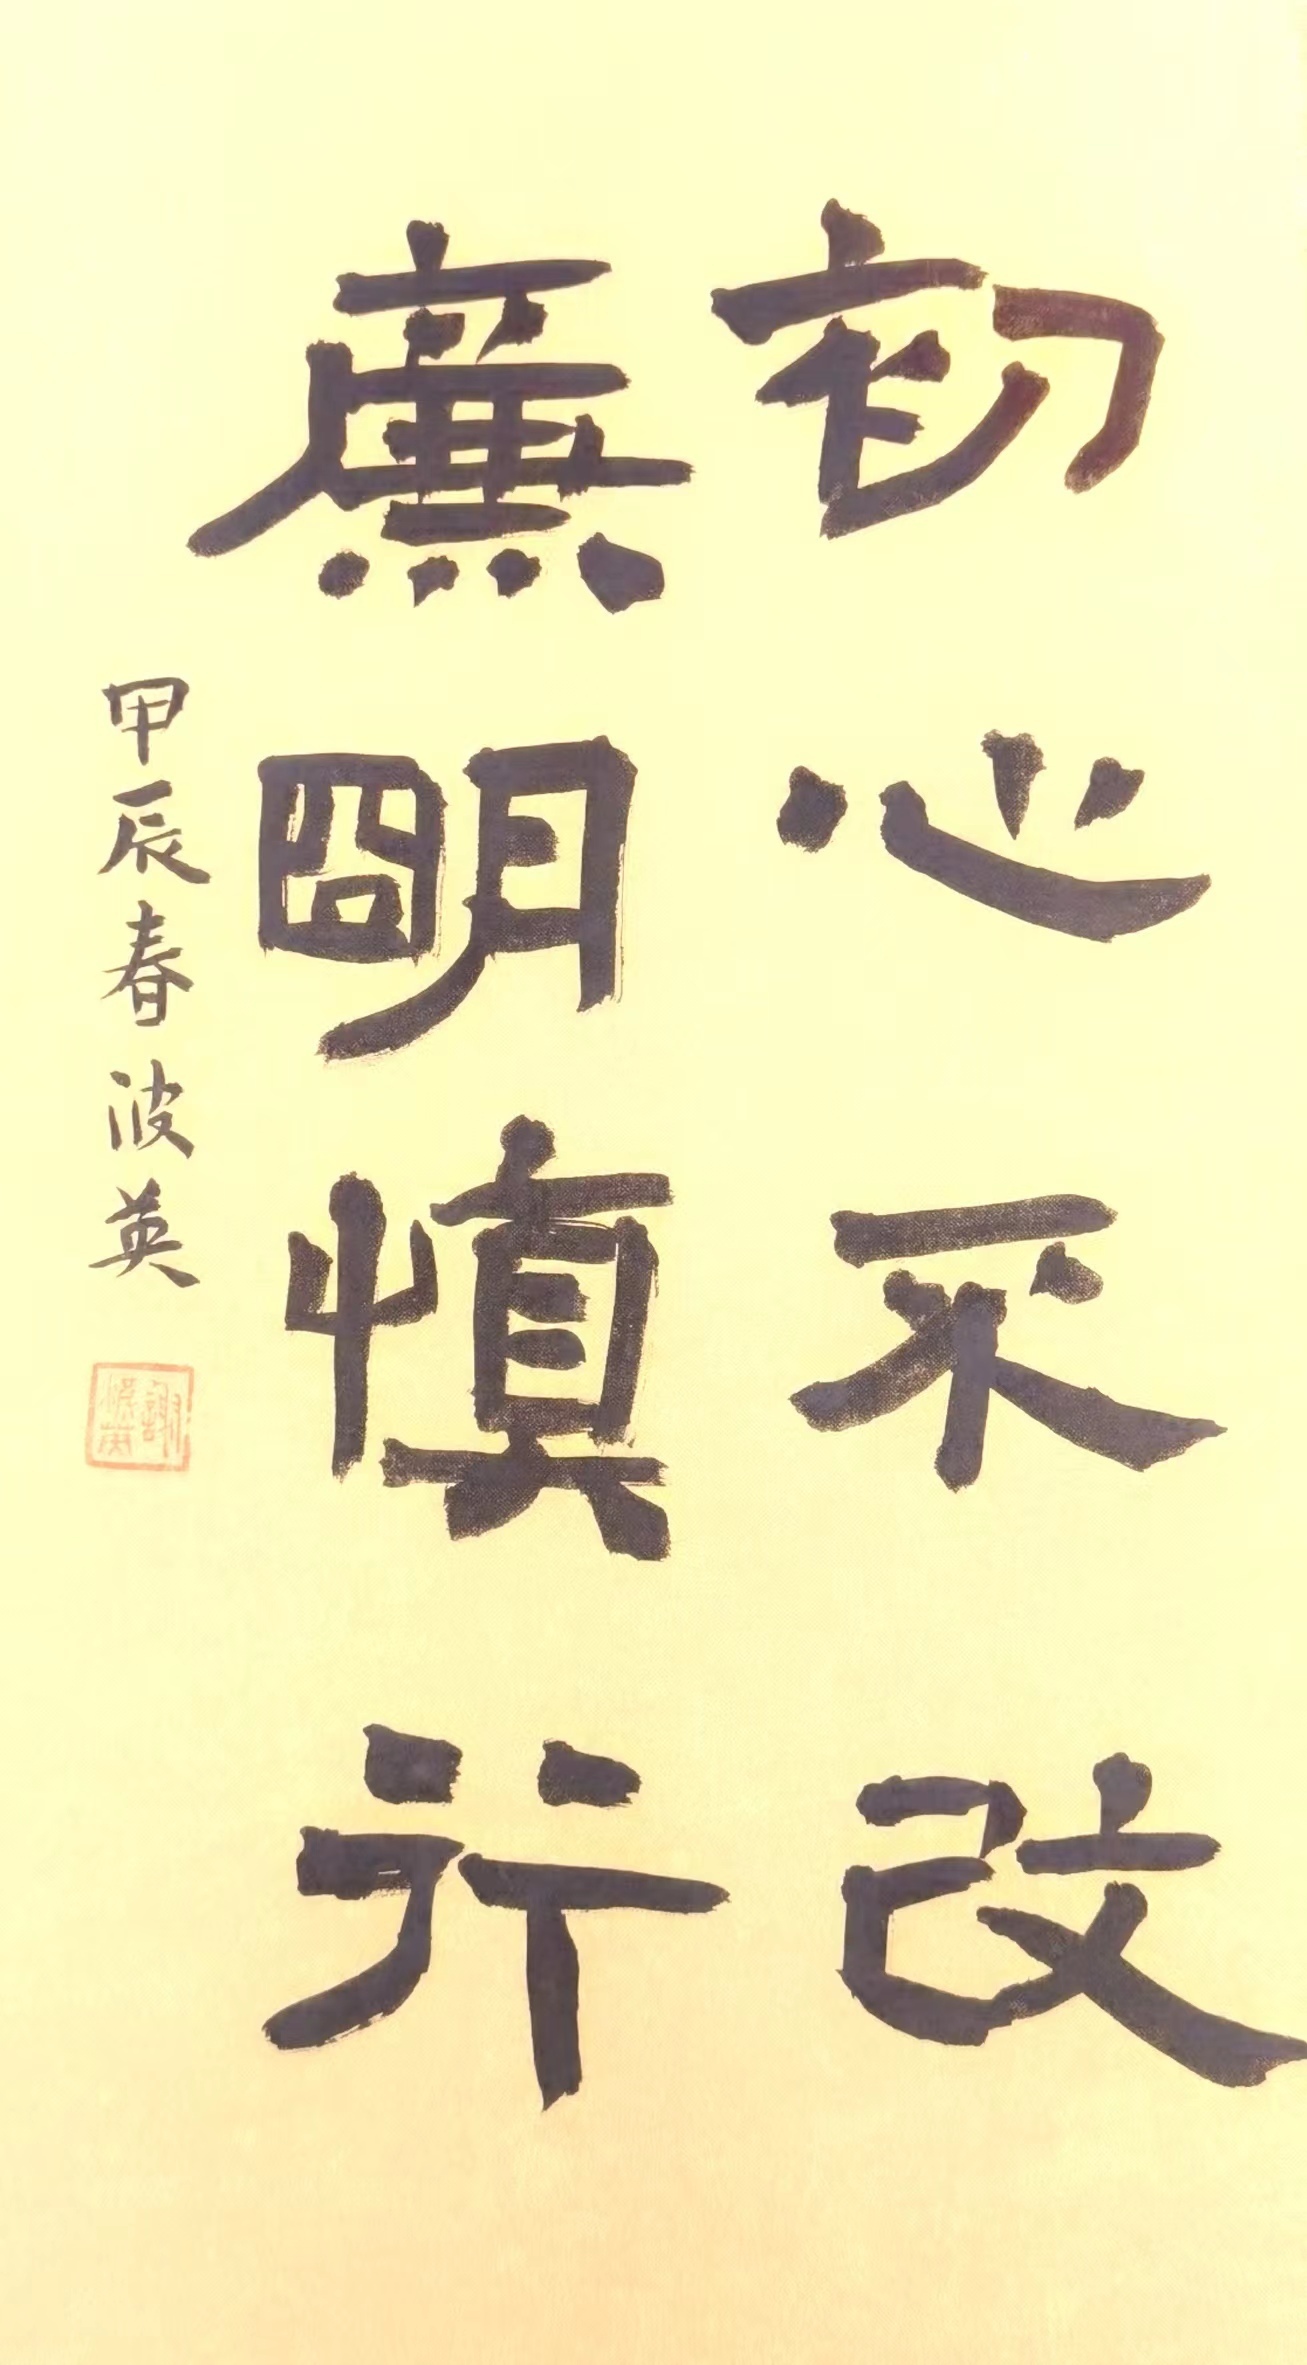 初心不改
廉明慎行
甲辰春波英